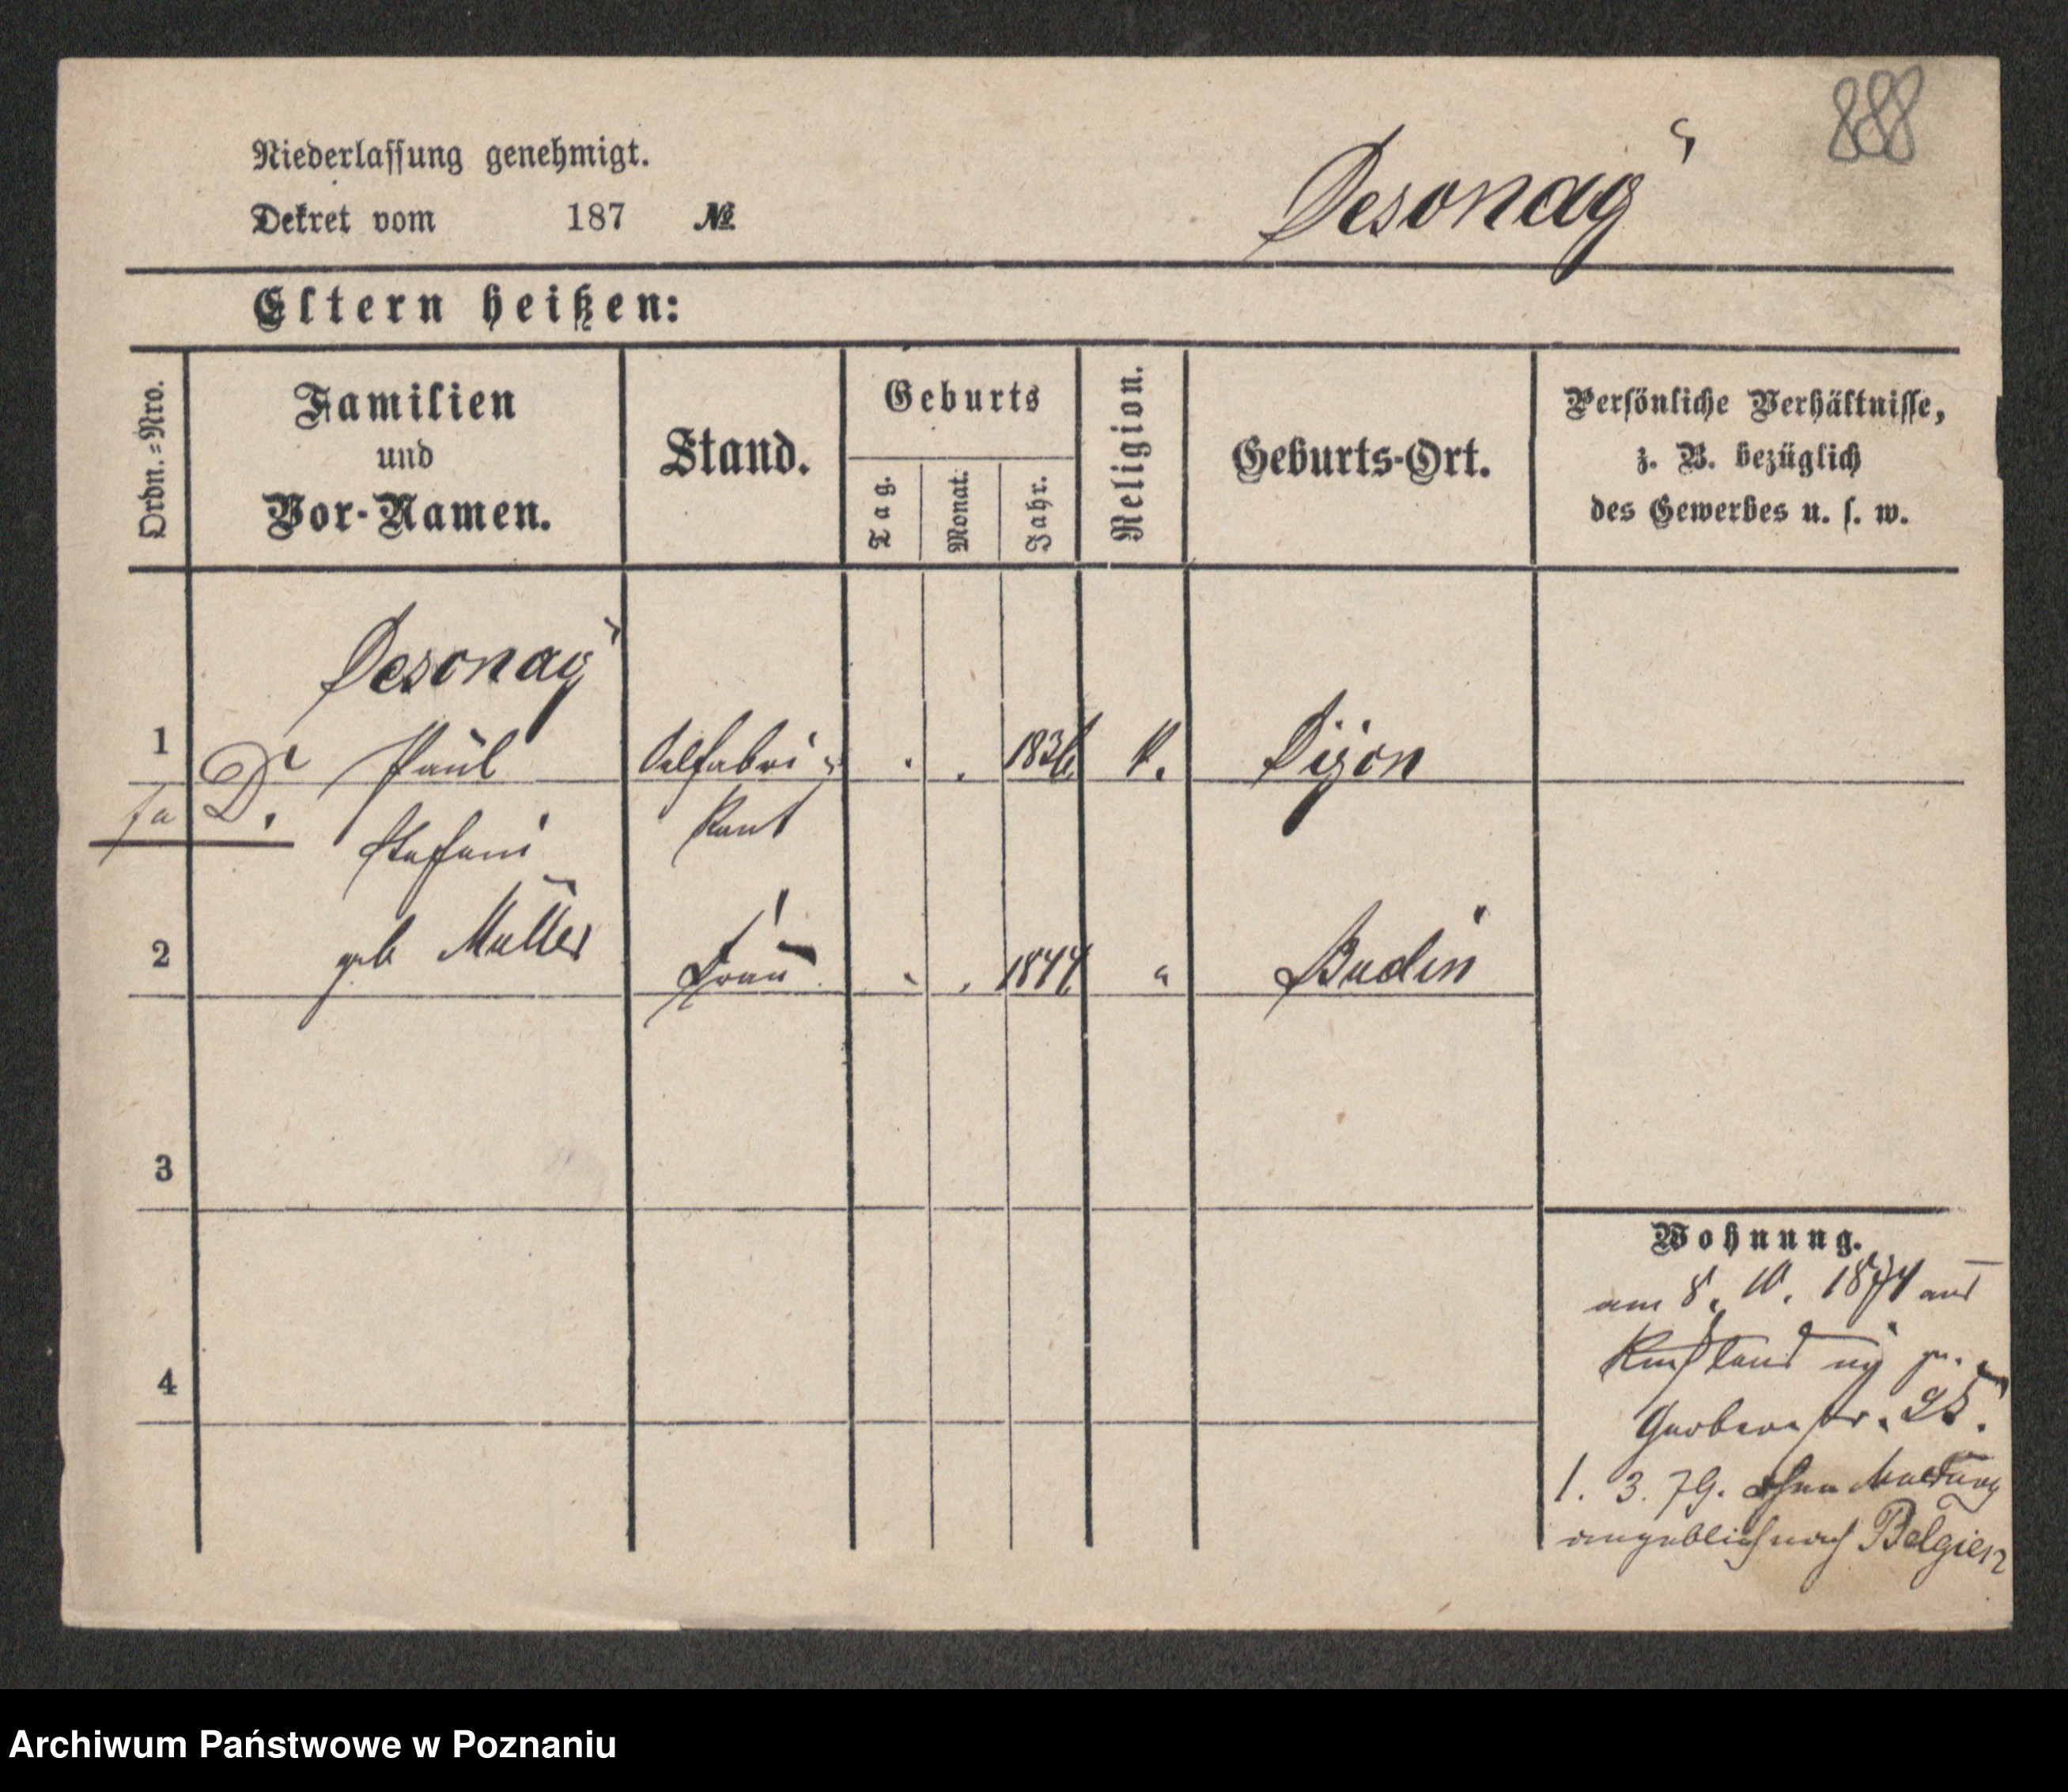 888
Niederlassung genehmigt.
Dekret vom 187 №
Desonay
Eltern heißen:
Ordn.=Nro.
Familien
und
Vor-Namen.
Stand.
Geburts
Tag.
Monat.
Jahr.
Religion.
Geburts-Ort.
Persönliche Verhältnisse,
z. B. bezüglich
des Gewerbes u. s. w.
Desonay
1 Paul Oelfabri- 1836 k. Dijon
D.
Stefani kant
2 geb Müller Frau 1844 " Budin
3
4
Wohnung.
am 8. 10. 1874 aus
Rußland
Gerberstr. 25.
1. 3. 79. ohne Meldung
angeblich nach Belgien
Archiwum Państwowe w Poznaniu